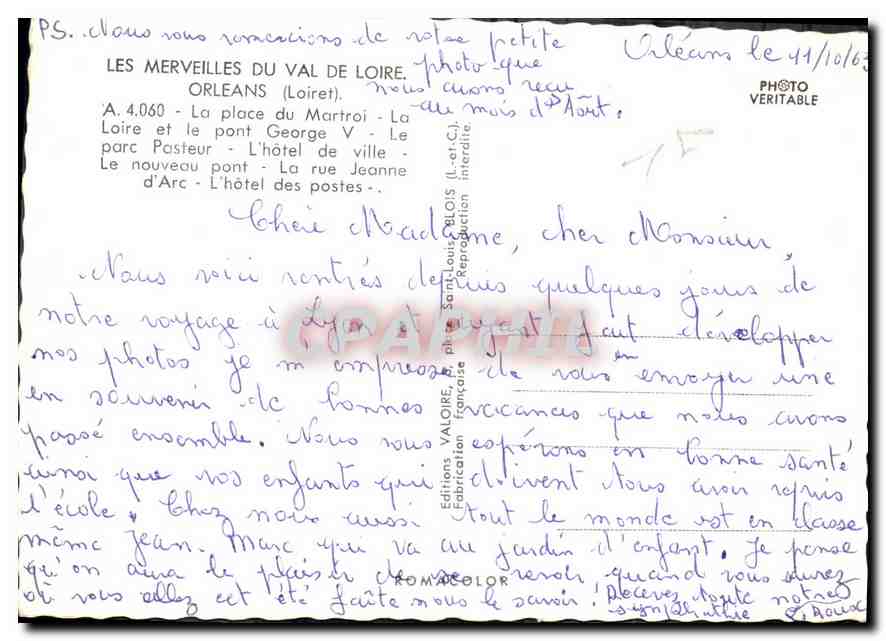 PS. Nous vous remercions de votre petite
photo que
nous avons reçu
au mois d'Août.
Orléans le 11/10/63
LES MERVEILLES DU VAL DE LOIRE.
ORLEANS (Loiret).
A. 4.060 - La place du Martroi - La
Loire et le pont George V - Le
parc Pasteur - L'hôtel de ville -
Le nouveau pont - La rue Jeanne
d'Arc - L'hôtel des postes -.
PHOTO
VERITABLE
15
Chère Madame, cher Monsieur
Nous voici rentrés depuis quelques jours de
notre voyage à Lyon et ayant fait développer
nos photos je m'empresse de vous en envoyer une
en souvenir de bonnes vacances que nous avons
passé ensemble. Nous vous espérons en bonne santé
ainsi que vos enfants qui doivent tous avoir repris
l'école. Chez nous aussi tout le monde est en classe
même Jean. Marc qui va au jardin d'enfant. Je pense
qu'on aura le plaisir de se revoir quand vous saurez
où vous allez cet été faîte nous le savoir! Recevez toute notre
sympathie
Editions VALOIRE, place Saint-Louis, BLOIS (L.-et-C.).
Fabrication française Reproduction interdite.
ROMACOLOR
CPAPHIL